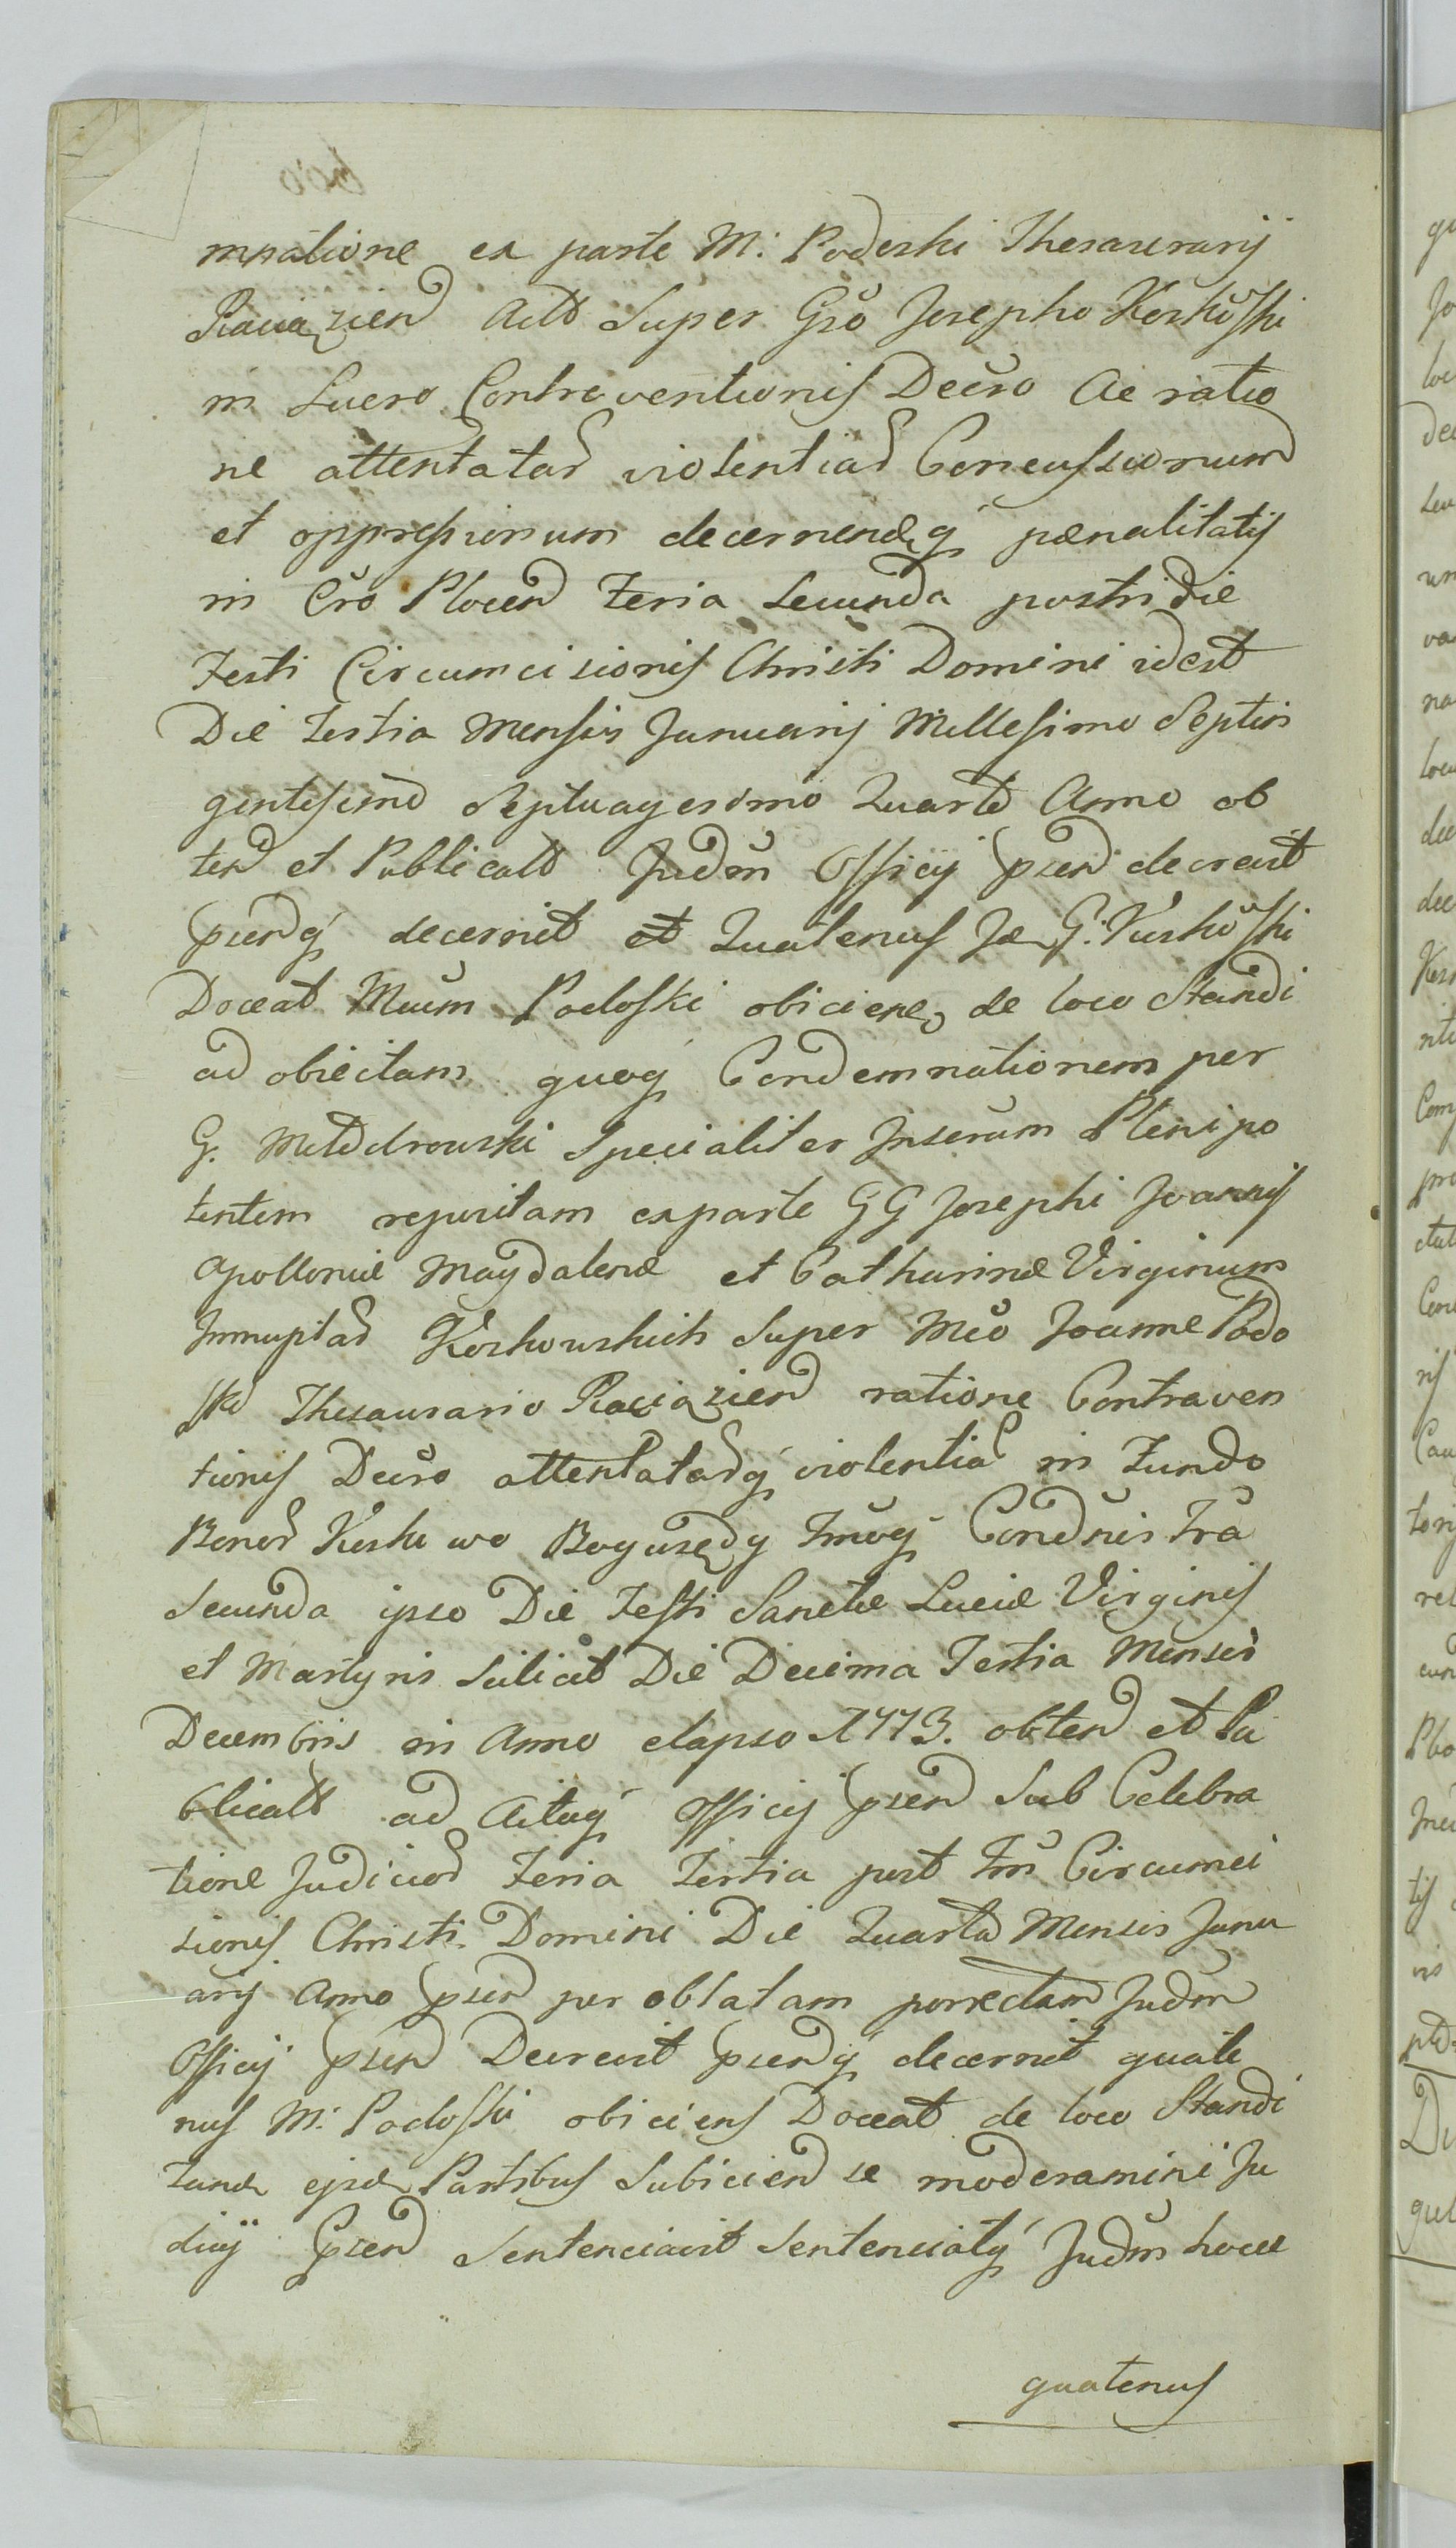 mpatione ex parte M. Podoski Thesaurarij
Raciązien Actt Super Gso Josepho Koskoski
in Lucro Contraventionis Decro Ac ratio
ne attentatar violentiar Concussionum
et oppressionum decernendæq pænalitatis
in Cro Plocen Feria Secunda postridie
Festi Circumcisionis Christi Domini idest
Die tertia Mensis Januarij Millesimo Septin
gentesimo Septuagesimo Quarto Anno ob
ten et Publicatt Judm Officij psen decrevit
psenq decernit et Quatenus G. Kuskoski
Doceat Mcum Podoski obiciene de loco Standi
ad obiectam quoq Condemnationem per
G. Specialiter Plenipo
tentem reportam exparte GG Josephi Joannis
Apolloniæ Magdalenæ et Catharinæ Virginum
Innuptar Koskowskich Super Mco Joanne Podo
ski Thesaurario Raciązien ratione Contraven
tionis Decro attentatarq violentiar in Fundo
Bonor Kosko wo Bogusędy Condnis Fra
Secunda ipso Die Festi Sanctæ Luciæ Virginis
et Martyris Scilicet Die Decima Tertia Mensis
Decembris in Anno elapso 1773. obten et Pu
blicatt ad Actaq Officij psen Sub Celebra
tione Judicior Feria Tertia post Fm Circumci
sionis Christi Domini Die Quarta Mensis Janu
arij Anno psen per oblatam porrectam Judm
Officij psen Decrevit psenq decernit quate
nus M. Podoski obiciens Doceat de loco Standi
Tand Partibus Subicien se moderamini Ju
dicij psen Sentenciavit Sentenciatq Judm hocce
quatenus